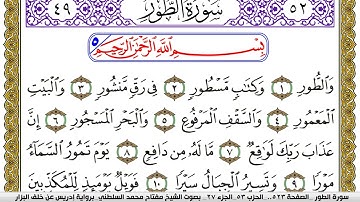 ٤٩ سُورَةُ الطُّورِ ٥٢
بِسْمِ اللَّهِ الرَّحْمَٰنِ الرَّحِيمِ
وَالطُّورِ ١ وَكِتَابٍ مَّسْطُورٍ ٢ فِي رَقٍّ مَّنشُورٍ ٣ وَالْبَيْتِ
الْمَعْمُورِ ٤ وَالسَّقْفِ الْمَرْفُوعِ ٥ وَالْبَحْرِ الْمَسْجُورِ ٦ إِنَّ
عَذَابَ رَبِّكَ لَوَاقِعٌ ٧ مَّا لَهُ مِن دَافِعٍ ٨ يَوْمَ تَمُورُ السَّمَاءُ
مَوْرًا ٩ وَتَسِيرُ الْجِبَالُ سَيْرًا ١٠ فَوَيْلٌ يَوْمَئِذٍ لِّلْمُكَذِّبِينَ
سورة الطور الصفحة ٥٢٣.. الحزب ٥٣ الجزء ٢٧ بصوت الشيخ مفتاح محمد السلطني. برواية إدريس عن خلف البزار